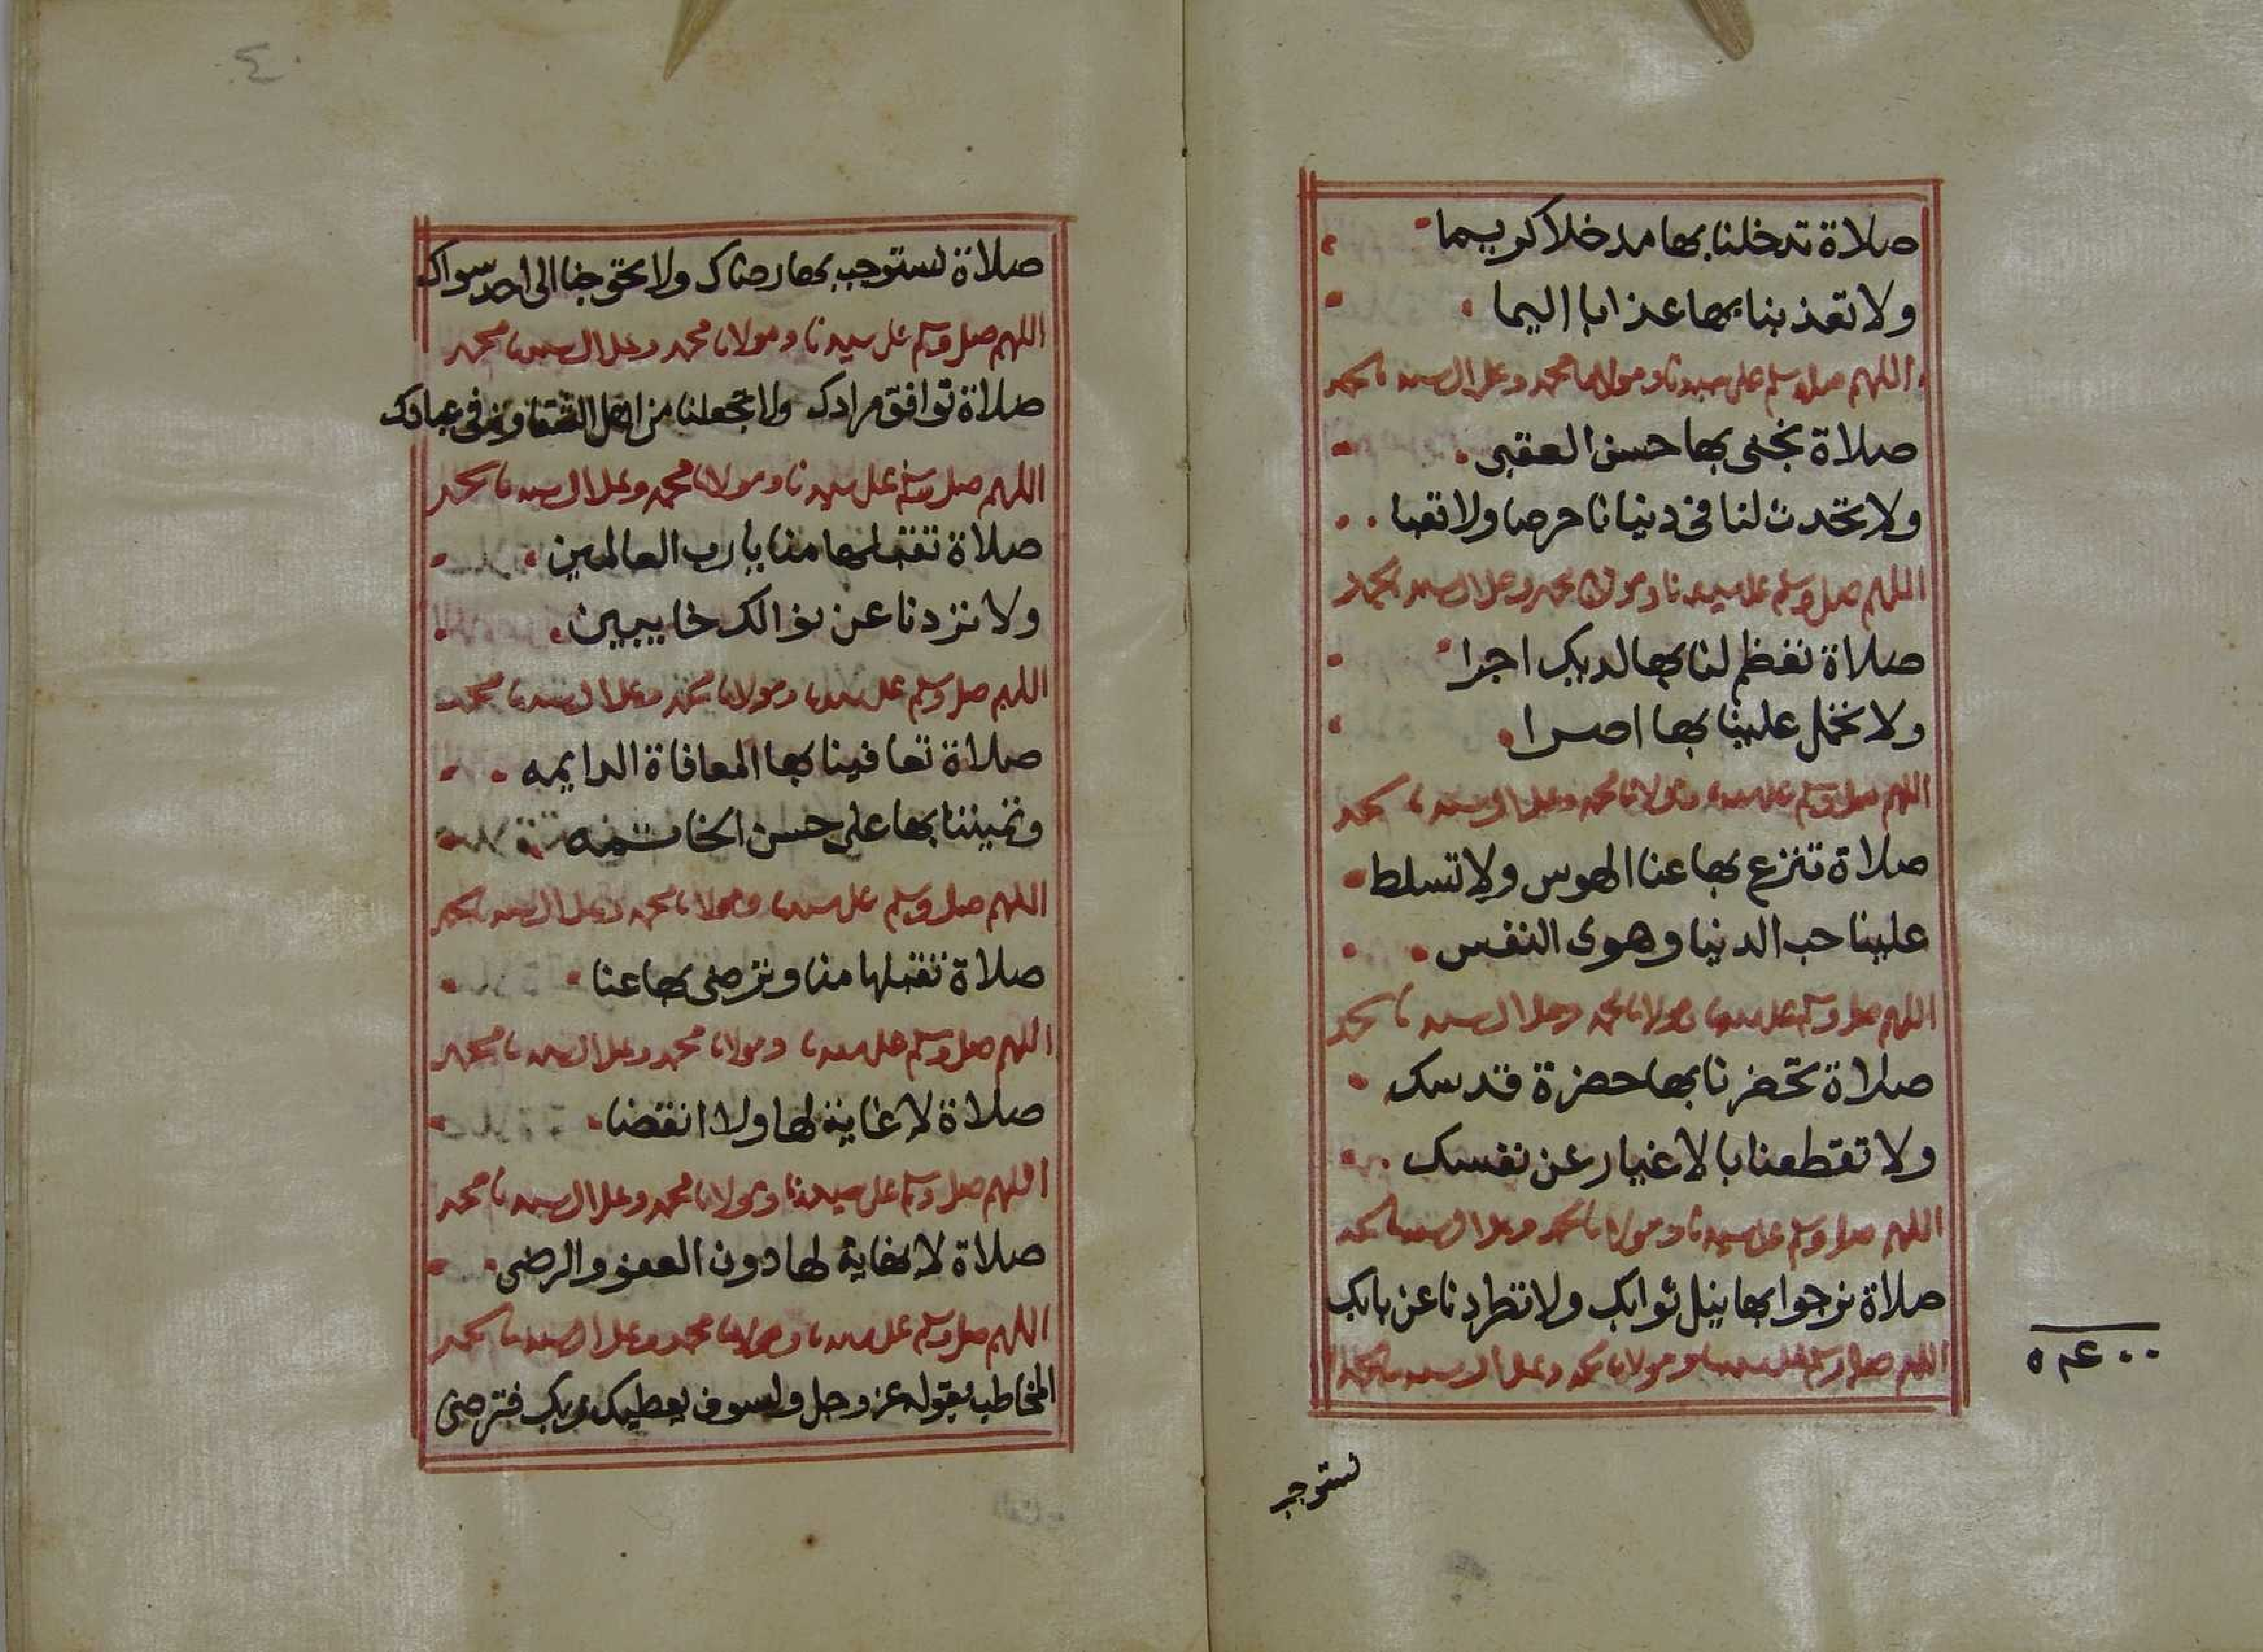 صلاة تدخلنا بها مدخلا كريما
ولا تعذبنا بها عذابا اليما
اللهم صل وسلم على سيدنا ومولانا محمد وعلى ال سيدنا محمد
صلاة نجنى بها حسن العقبى
ولا تحدث لنا فى دنيانا حرصا ولا تعبا
اللهم صل وسلم على سيدنا ومولانا محمد وعلى ال سيدنا محمد
صلاة تعظم لنا بها لديك اجرا
ولا تحمل علينا بها اصرا
اللهم صل وسلم على سيدنا ومولانا محمد وعلى ال سيدنا محمد
صلاة تنزع بها عنا الهوس ولا تسلط
علينا حب الدنيا وهوى النفس
اللهم صل وسلم على سيدنا ومولانا محمد وعلى ال سيدنا محمد
صلاة تحضرنا بها حضرة قدسك
ولا تقطعنا بالاغيار عن نفسك
اللهم صل وسلم على سيدنا ومولانا محمد وعلى ال سيدنا محمد
صلاة نرجوا بها نيل ثوابك ولا تطردنا عن بابك
اللهم صل وسلم على سيدنا ومولانا محمد وعلى ال سيدنا محمد
نستوجب
٤
صلاة نستوجب بها رضاك ولا تحوجنا الى احد سواك
اللهم صل وسلم على سيدنا ومولانا محمد وعلى ال سيدنا محمد
صلاة توافق مرادك ولا تجعلنا من اهل الشقاوة فى عبادك
اللهم صل وسلم على سيدنا ومولانا محمد وعلى ال سيدنا محمد
صلاة تتقبلها منا يا رب العالمين
ولا تردنا عن نوالك خايبين
اللهم صل وسلم على سيدنا ومولانا محمد وعلى ال سيدنا محمد
صلاة تعافينا بها المعافاة الدايمه
وتميتنا بها على حسن الخاتمه
اللهم صل وسلم على سيدنا ومولانا محمد وعلى ال سيدنا محمد
صلاة تتقبلها منا وترضى بها عنا
اللهم صل وسلم على سيدنا ومولانا محمد وعلى ال سيدنا محمد
صلاة لا غاية لها ولا انقضا
اللهم صل وسلم على سيدنا ومولانا محمد وعلى ال سيدنا محمد
صلاة لا نهاية لها دون العفو والرضى
اللهم صل وسلم على سيدنا ومولانا محمد وعلى ال سيدنا محمد
المخاطب بقوله عز وجل ولسوف يعطيك ربك فترضى